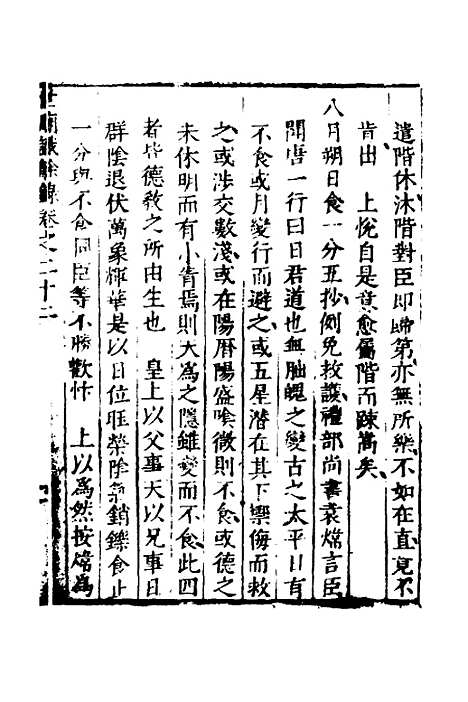 遣階休沐階對臣即歸第亦無所樂不如在直竟不
肯出　上悅自是意愈屬階而踈嵩矣
八月朔日食一分五抄例免救護禮部尚書袁煒言臣
聞唐一行曰日君道也無朏魄之變古之太平日有
不食或月變行而避之或五星潛在其下禦侮而救
之或涉交數淺或在陽曆陽盛陰微則不食或德之
未休明而有小眚焉則天為之隱雖變而不食此四
者皆德教之所由生也　皇上以父事天以兄事日
群陰退伏萬象輝華是以日位旺榮陰氛銷鑠食止
一分與不食同臣等不勝歡忭　上以為然按煒為
識餘錄卷之二十二